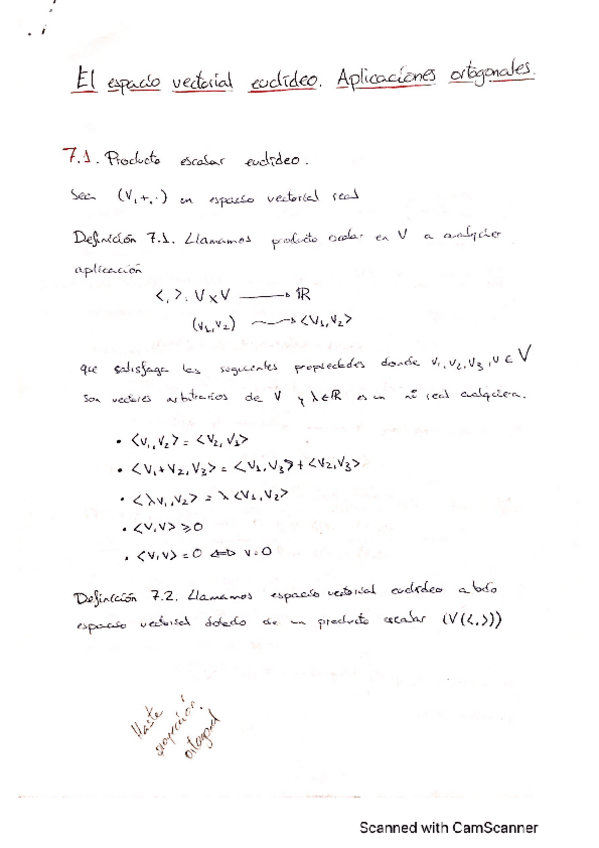 El espacio vectorial euclídeo. Aplicaciones ortogonales.
7.1. Producto escalar euclídeo.
Sea (V,+,·) un espacio vectorial real
Definición 7.1. Llamamos producto escalar en V a cualquier
aplicación
<,>: V x V → ℝ
(v₁,v₂) ⇝ <v₁,v₂>
que satisfaga las siguientes propiedades donde v₁,v₂,v₃,v ∈ V
son vectores arbitrarios de V y λ∈ℝ es un nº real cualquiera.
• <v₁,v₂> = <v₂,v₁>
• <v₁+v₂,v₃> = <v₁,v₃> + <v₂,v₃>
• <λv₁,v₂> = λ<v₁,v₂>
• <v,v> ≥ 0
• <v,v> = 0 ⇔ v=0
Definición 7.2. Llamamos espacio vectorial euclídeo a todo
espacio vectorial dotado de un producto escalar (V(<,>))
Hasta
proyección
ortogonal
Scanned with CamScanner